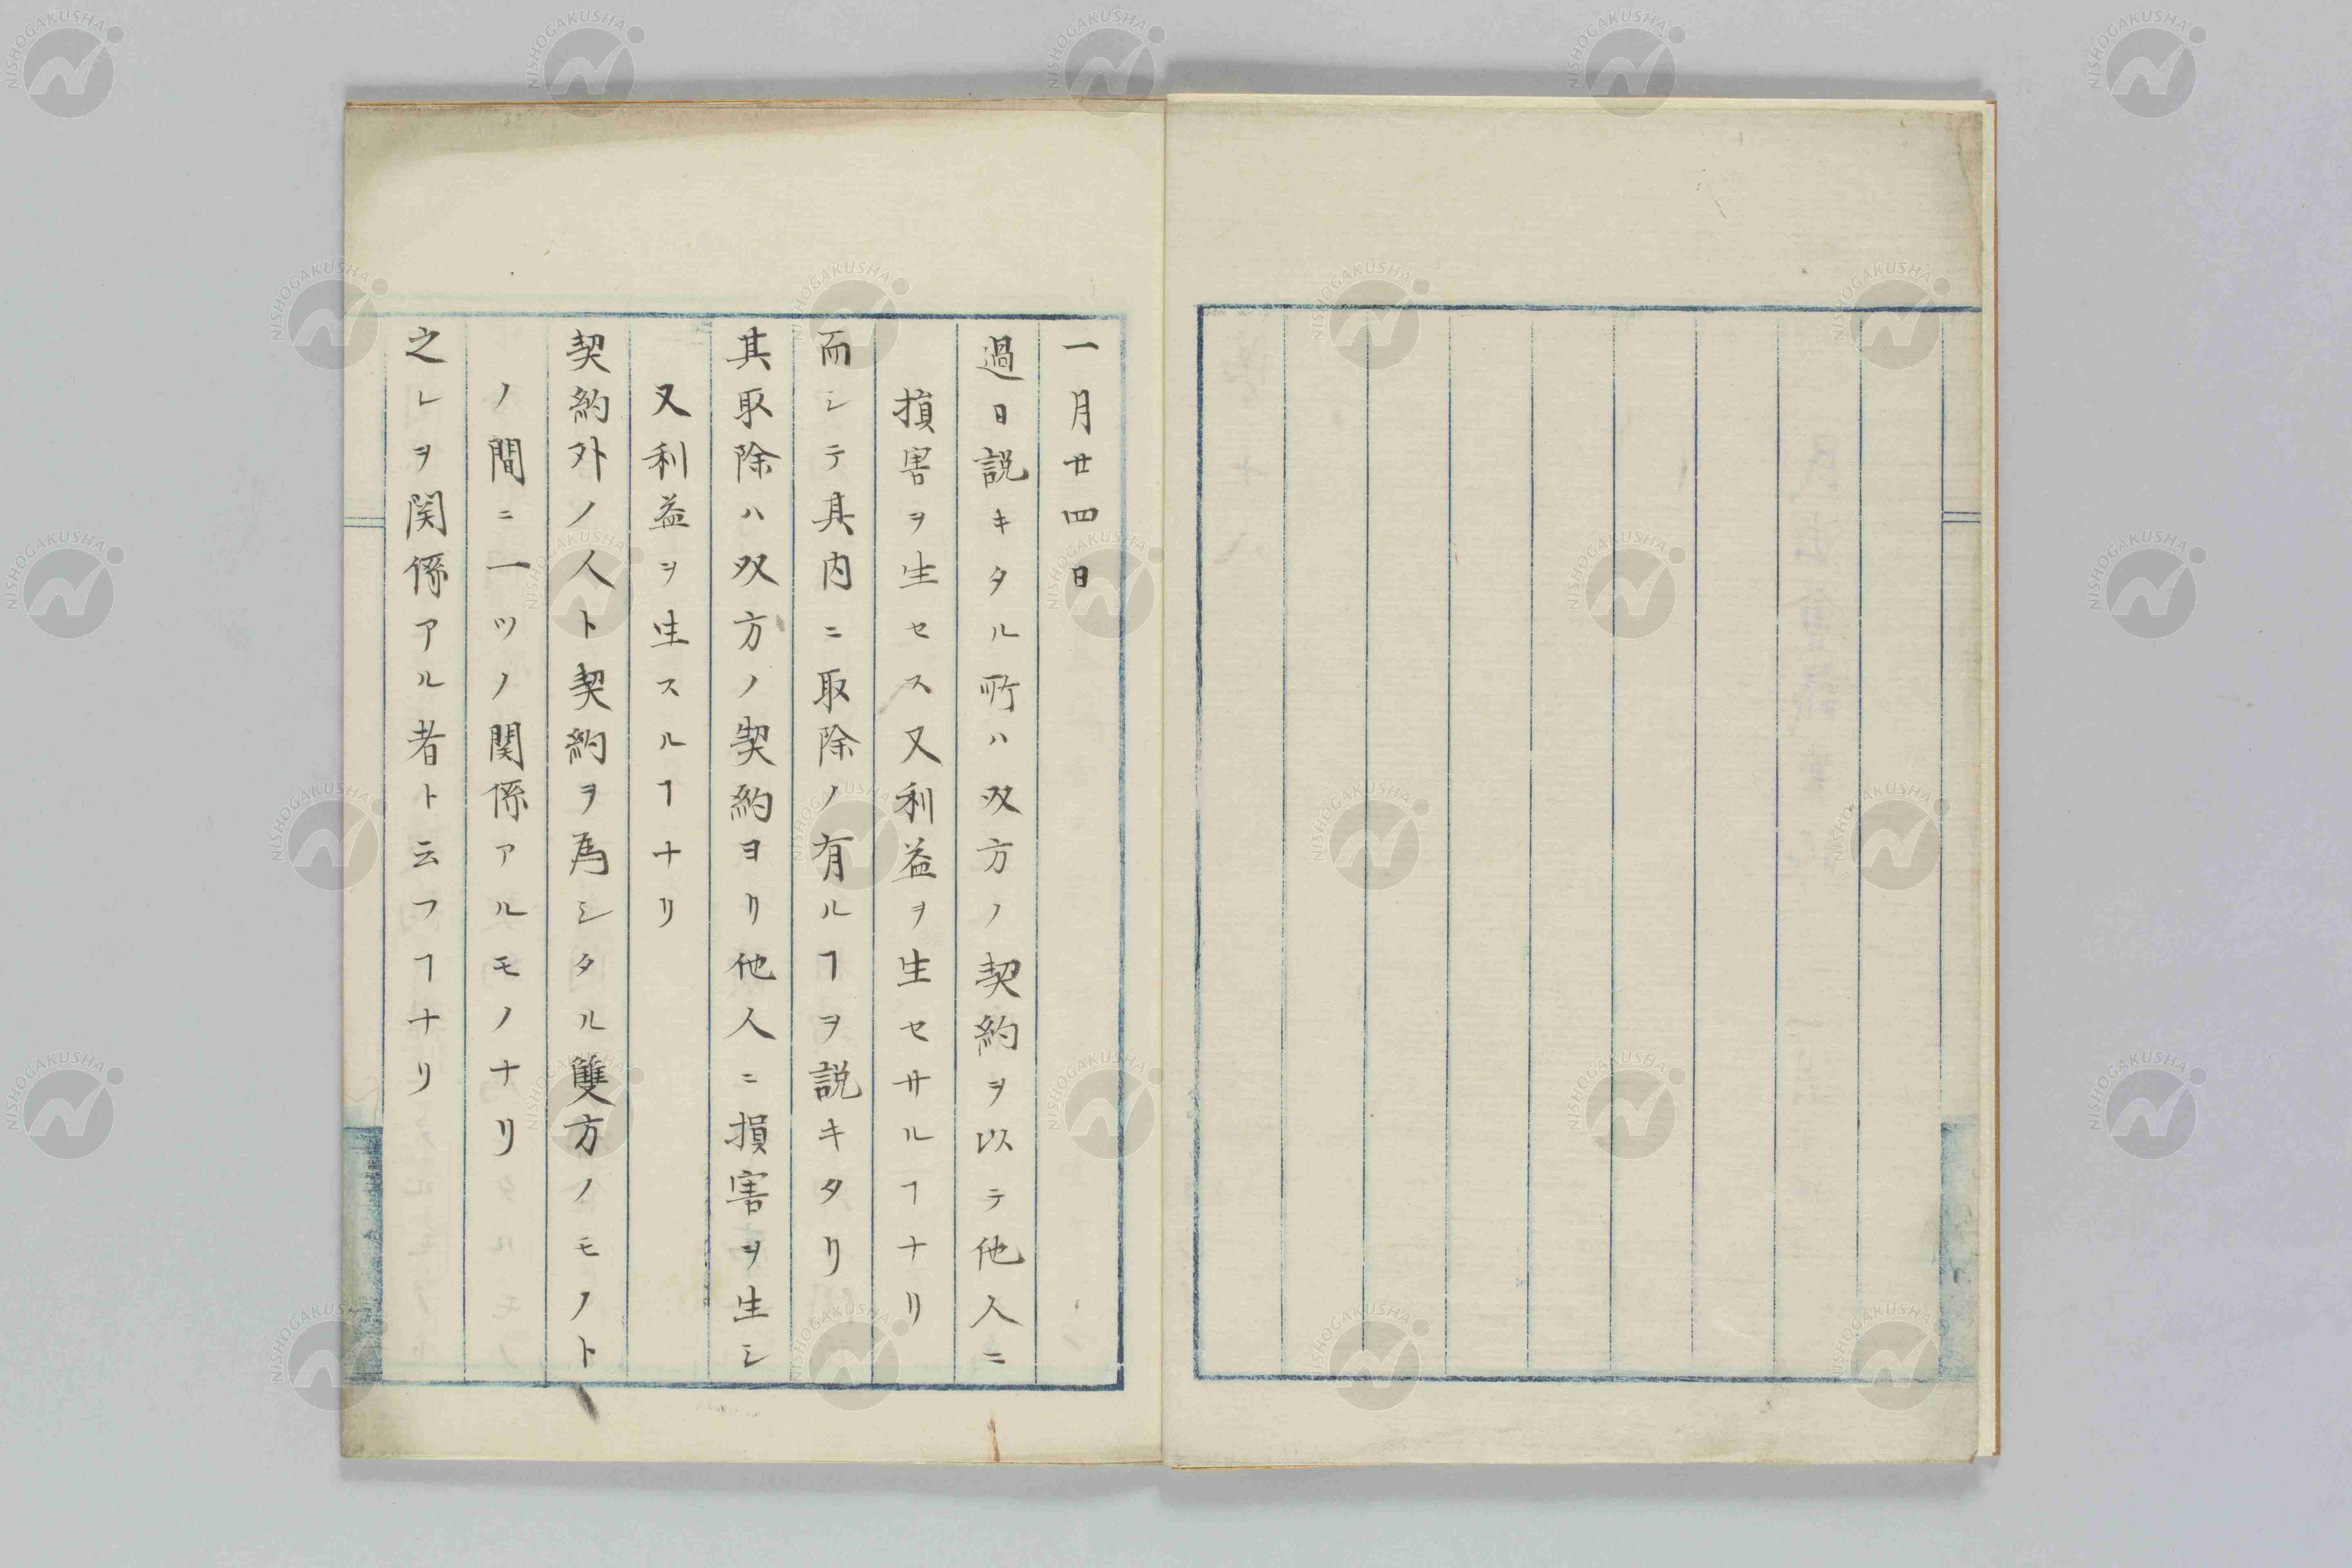 一月廿四日
過日説キタル所ハ双方ノ契約ヲ以テ他人ニ
損害ヲ生セス又利益ヲ生セサルヿナリ
而シテ其内ニ取除ノ有ルヿヲ説キタリ
其取除ハ双方ノ契約ヨリ他人ニ損害ヲ生シ
又利益ヲ生スルヿナリ
契約外ノ人ト契約ヲ為シタル雙方ノモノト
ノ間ニ一ツノ関係アルモノナリ
之レヲ関係アル者ト云フヿナリ
NISHOGAKUSHA